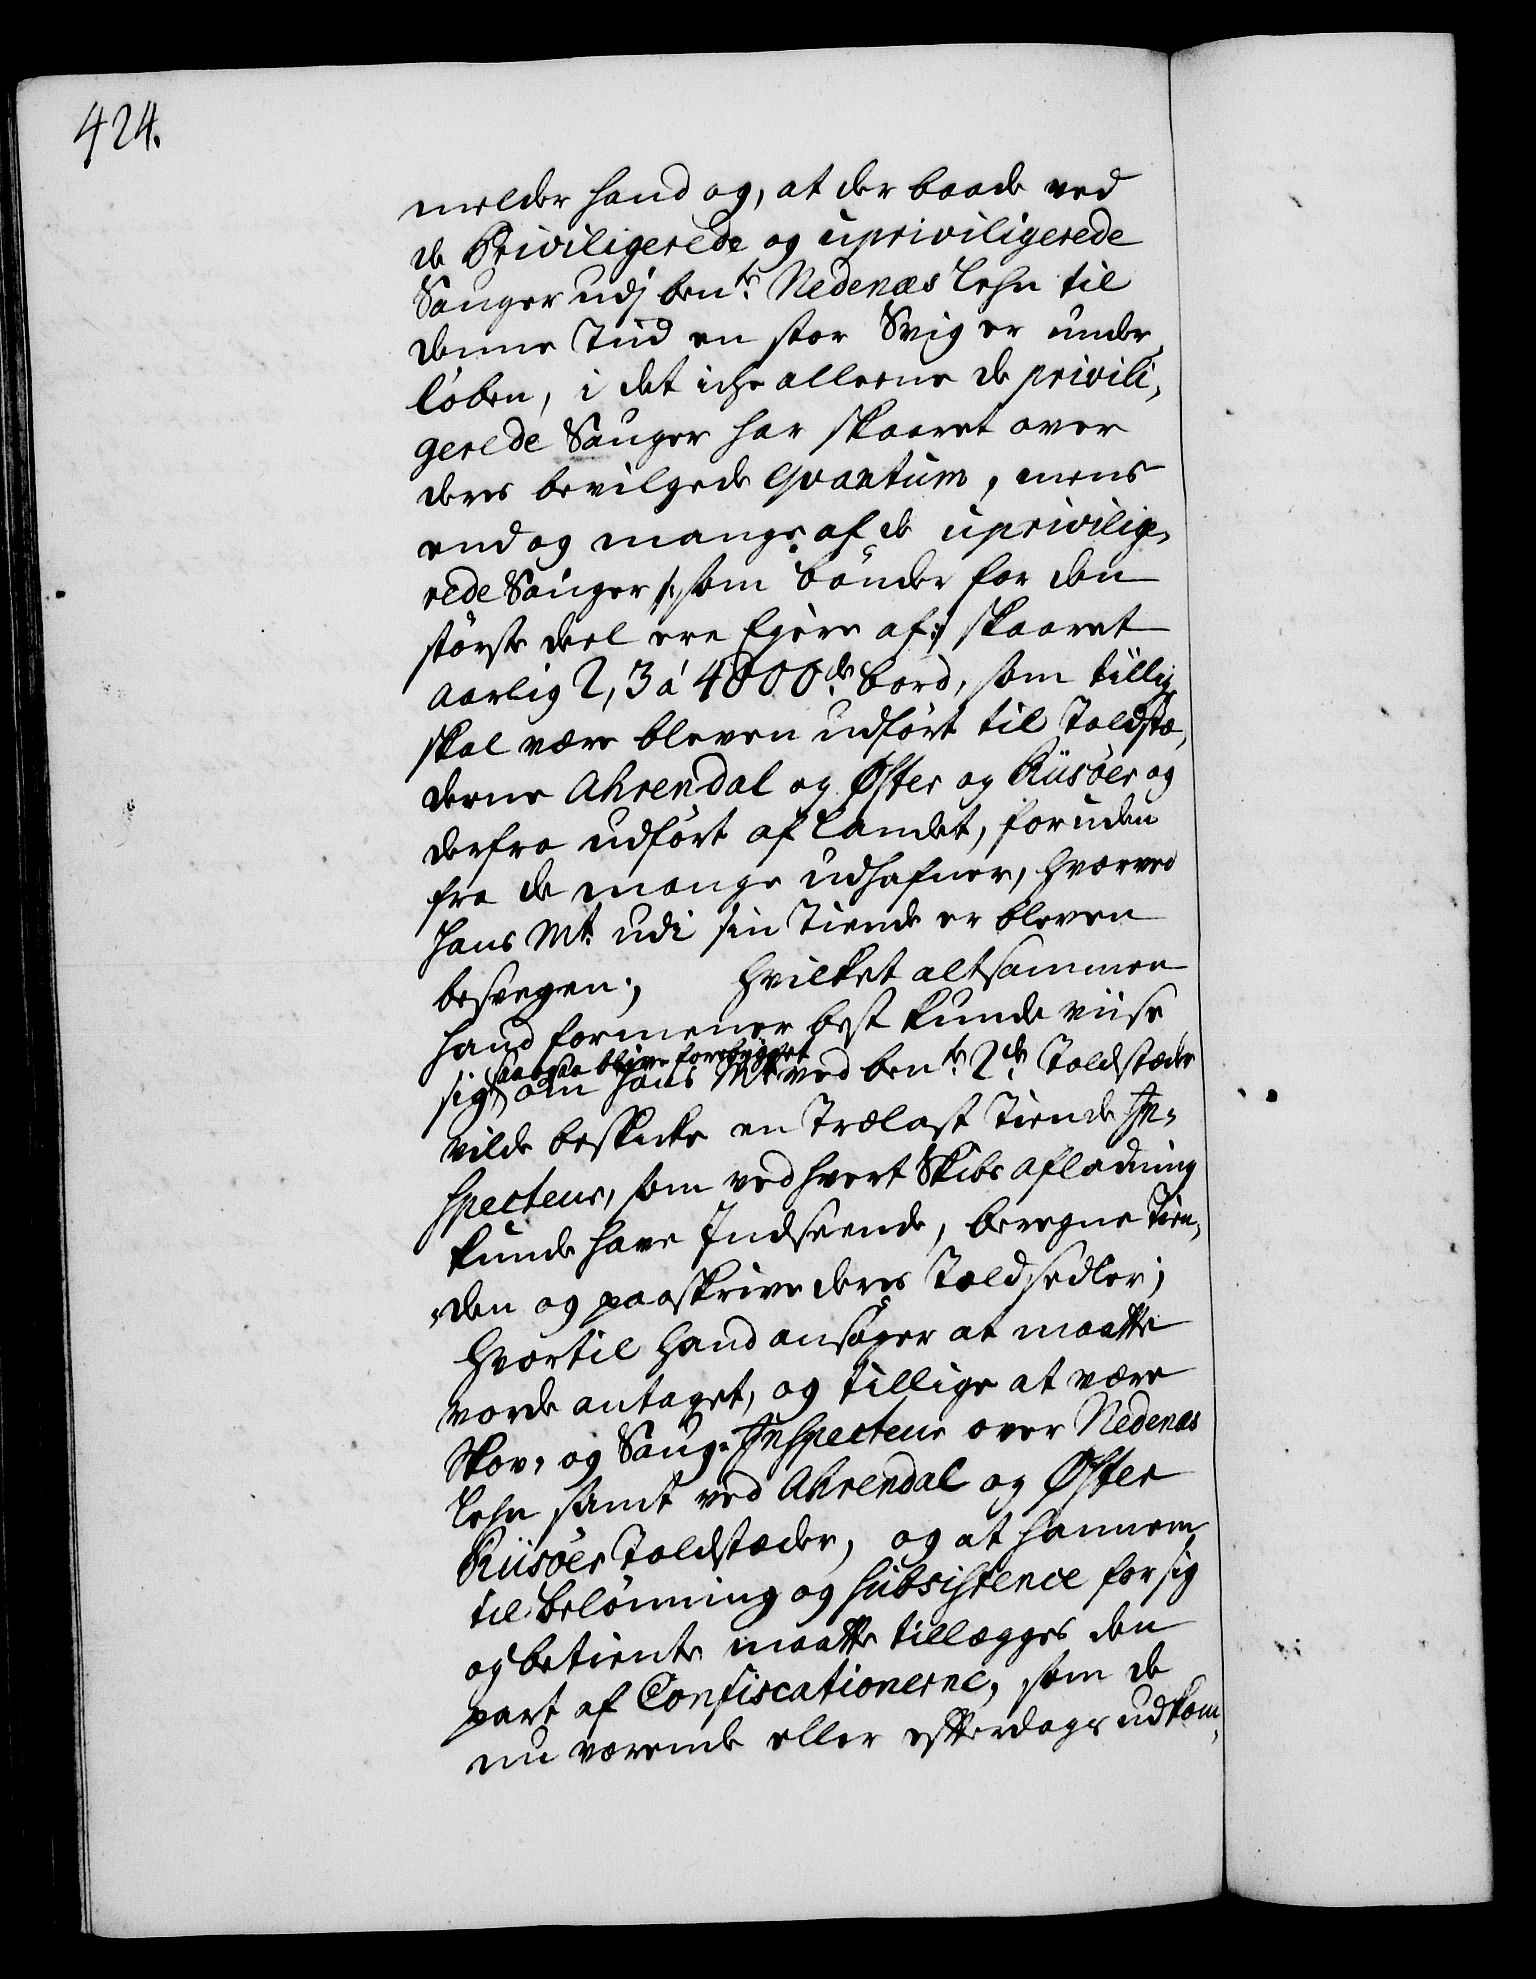 424.
melder hand og, at der baade ved
de Priviligerede og upriviligerede
Sauger udj ben.te Nedenæs Lehn til
denne Tiid en stor Svig er under
løben, i det iche alleene de privili,
gerede Sauger har skaaret over
deres bevilgede Qvantum, mens
end og mange af de uprivilige,
rede Sauger /: som bønder for den
største deel ere Ejere af :/ skaaret
aarlig 2, 3 á 4000de bord, som tillig
skal være bleven udført til Toldstæ,
derne Ahrendal og Øster og Riisøer og
derfra udført af Landet, foruden
fra de mange udhafner, hvorved
Hans Mt. udi sin Tiende er bleven
besvegen; Hvilket altsammen
hand formener best kunde viise
saaledes blive forebygget
sig, om Hans Mt. ved ben.te 2de Toldstæder
vilde beskicke en Trælast Tiende In,
specteur, som ved hvert Skibs afladning
kunde have Indseende, beregne Tien,
den og paaskrive deres Toldsedler;
Hvortil hand ansøger at maatte
vorde antaget, og tillige at være
Skov- og Saug-Inspecteur over Nedenæs
Lehn samt ved Ahrendal og Øster
Riisøer Toldstæder, og at hannem
til Belønning og subsistence for sig
og betiente maatte tillægges den
part af Confiscationerne, som de
nu værende eller efterdags udkom,